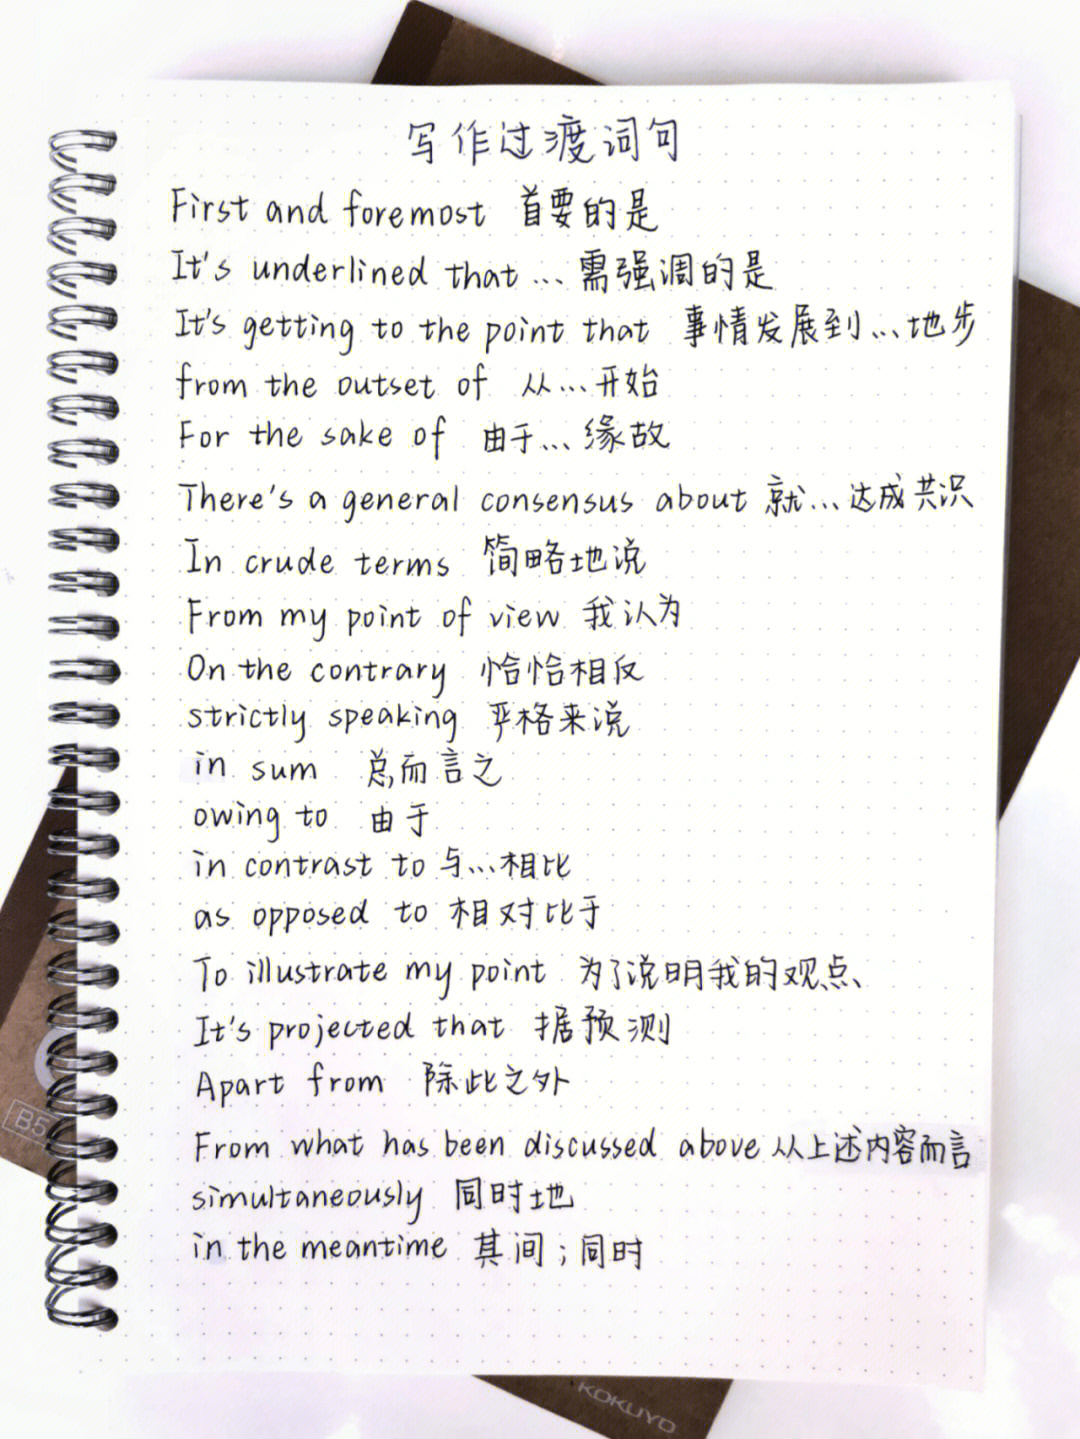 写作过渡词句
First and foremost 首要的是
It's underlined that ... 需强调的是
It's getting to the point that 事情发展到...地步
from the outset of 从...开始
For the sake of 由于...缘故
There's a general consensus about 就...达成共识
In crude terms 简略地说
From my point of view 我认为
On the contrary 恰恰相反
strictly speaking 严格来说
in sum 总而言之
owing to 由于
in contrast to 与...相比
as opposed to 相对比于
To illustrate my point 为了说明我的观点、
It's projected that 据预测
Apart from 除此之外
From what has been discussed above 从上述内容而言
simultaneously 同时地
in the meantime 其间；同时
B5
KOKUYO